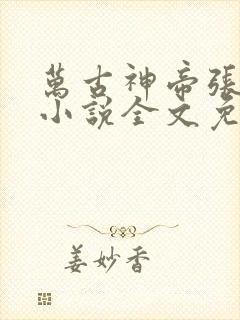 萬古神帝張
小說全文免
姜妙香